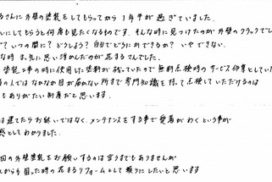 さんに外壁の塗装をしてもらってから1年半が過ぎていました。
にしてもらうと何年も見たくなるものです。そんな時に見つけたのが外壁のクラックでし
？いつの間に？どうしよう？自分でどうにかできるか？いやできない。
時お気に思い浮かんだのが花まるさんでした。
塗装工事の時に使用した塗料が残っていたので無料点検時のサービス作業としていた
の人ではなかなか目が届かない所まで専門知識を持って点検していただけるのは
もありがたい制度だと思います。
は建てたらお終いではなく、メンテナンスをする事で愛着がわくという事が
感としてわかりました。
回の外壁塗装をお願いするのは言うまでもありませんが
から目した時の花まるリフォームとして頼りにしたいと思います